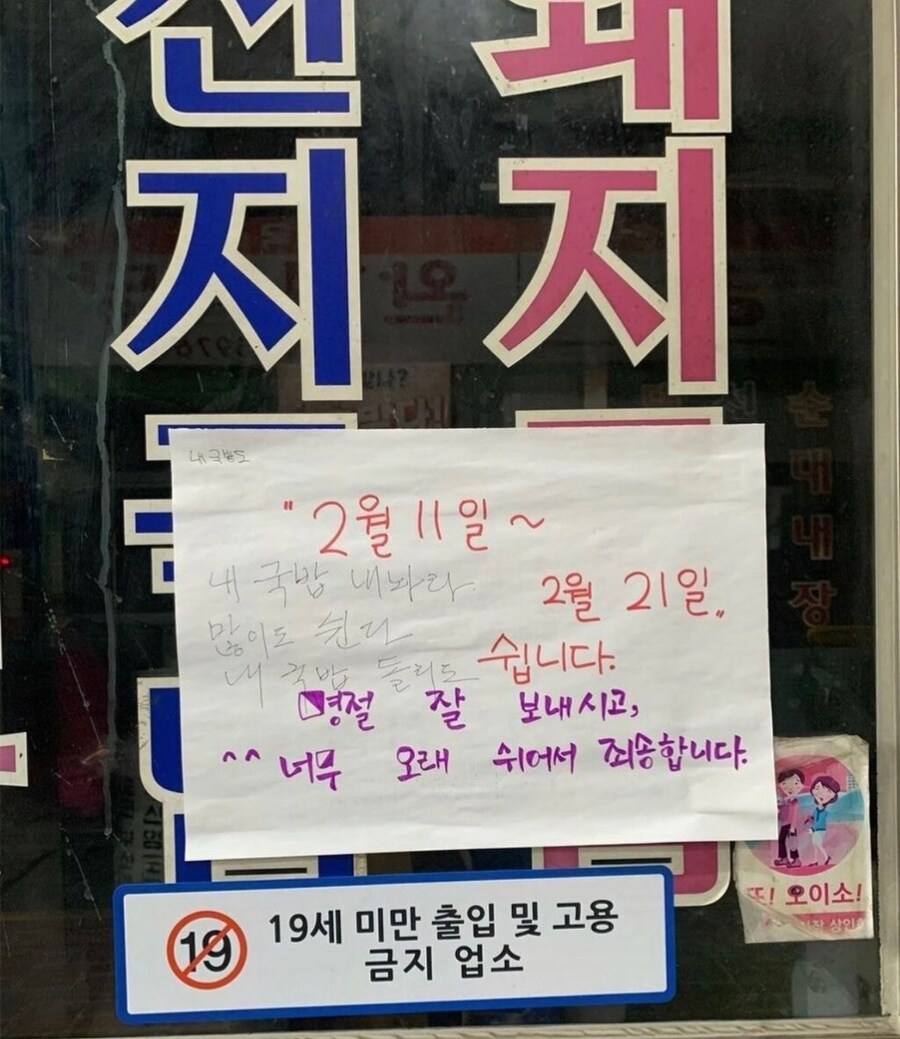 선 돼
지 지
순대내장
내국밥도
"2월 11일 ~
2월 21일"
쉽니다.
내 국밥 내놔라
많이도 쉰다
내 국밥 돌리도
명절 잘 보내시고,
^^ 너무 오래 쉬어서 죄송합니다.
또! 오이소!
19 19세 미만 출입 및 고용
금지 업소